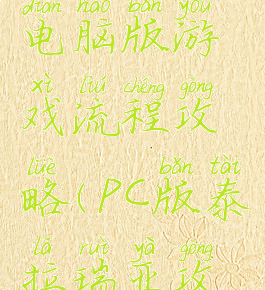 diàn nǎo bǎn yóu
电脑版游
xì liú chéng gōng
戏流程攻
lüè bǎn tài
略(PC版泰
lā ruì yà gōng
拉瑞亚攻